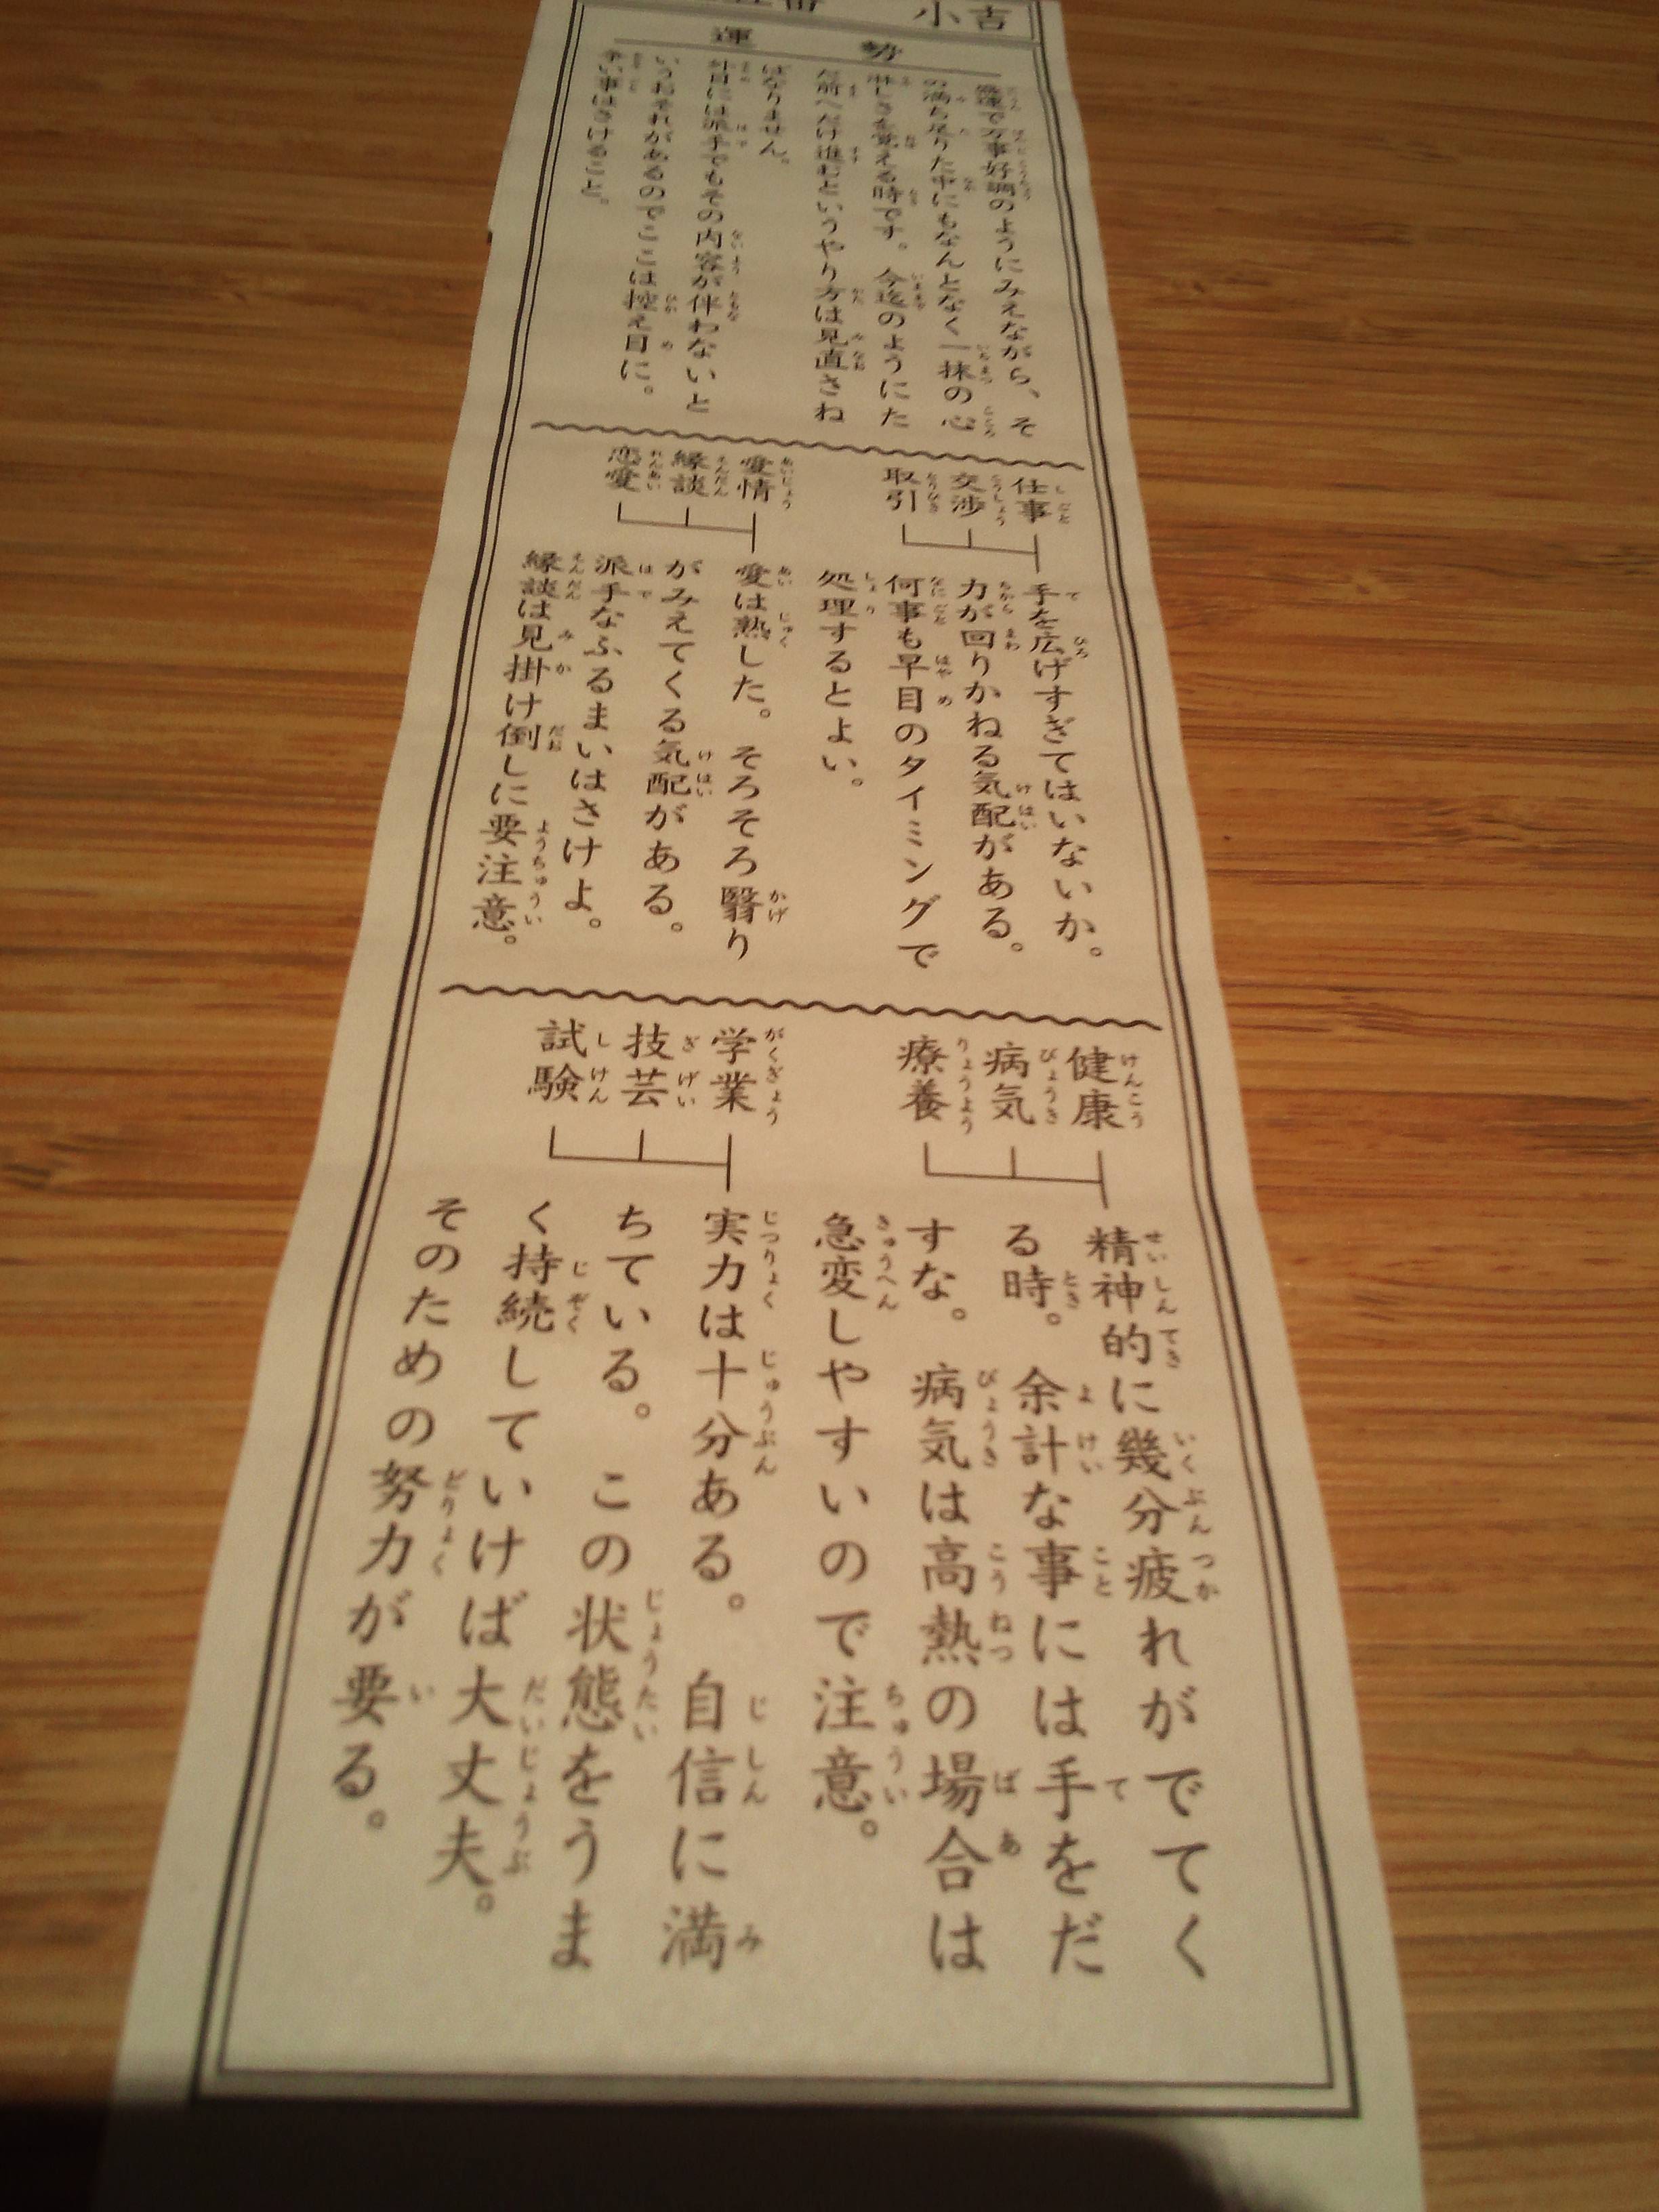 小吉
運勢
盛運で万事好調のようにみえながら、そ
の満ち足りた中にもなんとなく一抹の心
淋しさを覚える時です。今迄のようにた
だ前へだけ進むというやり方は見直さね
ばなりません。
外目には派手でもその内容が伴わないと
いうおそれがあるのでここは控え目に。
事はさけること。
仕事
交渉
取引
手を広げすぎてはいないか。
力が回りかねる気配がある。
何事も早目のタイミングで
処理するとよい。
愛情
縁談
恋愛
愛は熟した。そろそろ翳り
がみえてくる気配がある。
派手なふるまいはさけよ。
縁談は見掛け倒しに要注意。
健康
病気
療養
精神的に幾分疲れがでてく
る時。余計な事には手をだ
すな。病気は高熱の場合は
急変しやすいので注意。
学業
技芸
試験
実力は十分ある。自信に満
ちている。この状態をうま
く持続していけば大丈夫。
そのための努力が要る。